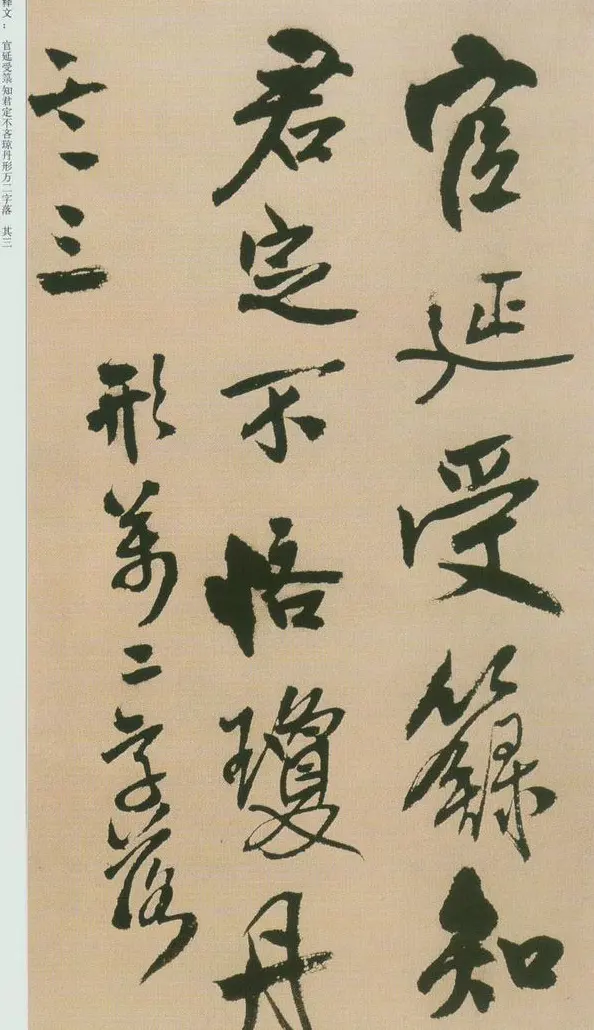 官延受籙知
君定不悋瓊丹
形萬二字落
其三
释文： 官延受箓知君定不吝琼丹形万二字落 其三